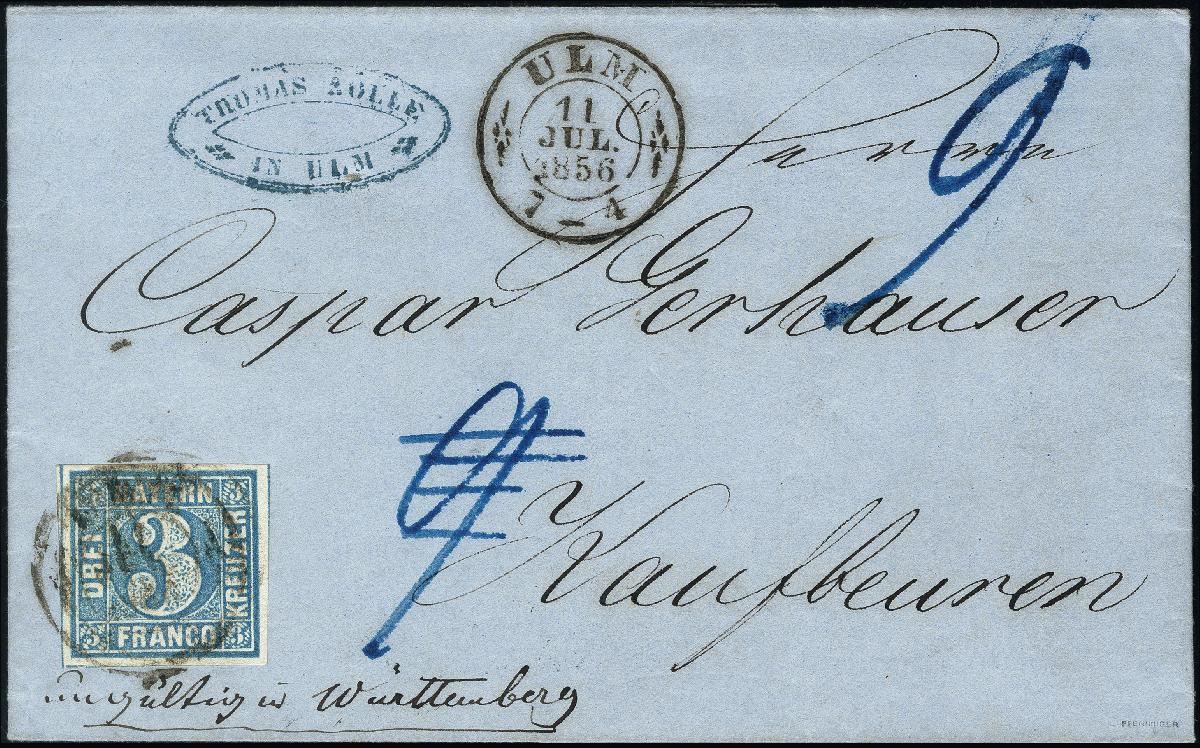 THOMAS KÖLLE
IN ULM
ULM
11
JUL.
1856
7 - 4
Herrn
9
Caspar Gerhauser
9
Kaufbeuren
3 BAYERN 3
DREI 3 KREUZER
3 FRANCO 3
ungültig in Württemberg
PFENNINGER